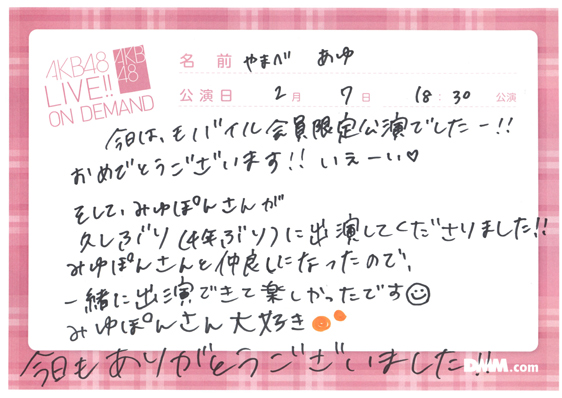 AKB48
LIVE!!
ON DEMAND
AKB
48
名前 やまべ あゆ
公演日 2月 7日 18:30 公演
今日は、モバイル会員限定公演でしたー!!
おめでとうございます!! いぇーい♡
そして、みゆぽんさんが
久しぶり(4年ぶり)に出演してくださりました!!
みゆぽんさんと仲良しになったので、
一緒に出演できて楽しかったです☺
みゆぽんさん大好き
今日もありがとうございました!!
DMM.com